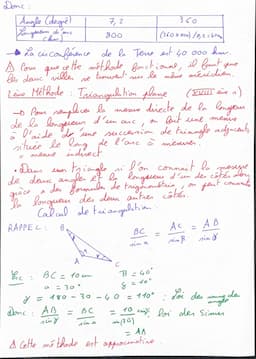 Donc :
Angle (degré) 7,2 360
Longueur d'arc (km) 800 (360×800)/7,2=40000
→ La circonférence de la Terre est 40 000 km.
⚠ Pour que cette méthode fonctionne, il faut que
les deux villes se trouvent sur le même méridien.
2ème Méthode : Triangulation plane (XVIII ème s)
→ Pour remplacer la mesure directe de la longueur
de la longueur d'un arc, on fait une mesure
à l'aide de une succession de triangles adjacents
située le long de l'arc à mesurer.
= mesure indirecte
• Dans un triangle si l'on connaît la mesure
de deux angles et la longueur d'un des côtés alors
grâce à des formules de trigonométrie, on peut connaître
la longueur des deux autres côtés.
Calcul de triangulation.
RAPPEL : B
A C
BC/sin α = AC/sin β = AB/sin γ
Ex : BC = 10 cm β = 40°
α = 30°
γ = 180 - 30 - 40 = 110° : loi des angles
Donc : AB/sin γ = BC/sin α = 10/sin(30) loi des sinus
⚠ Cette méthode est approximative.